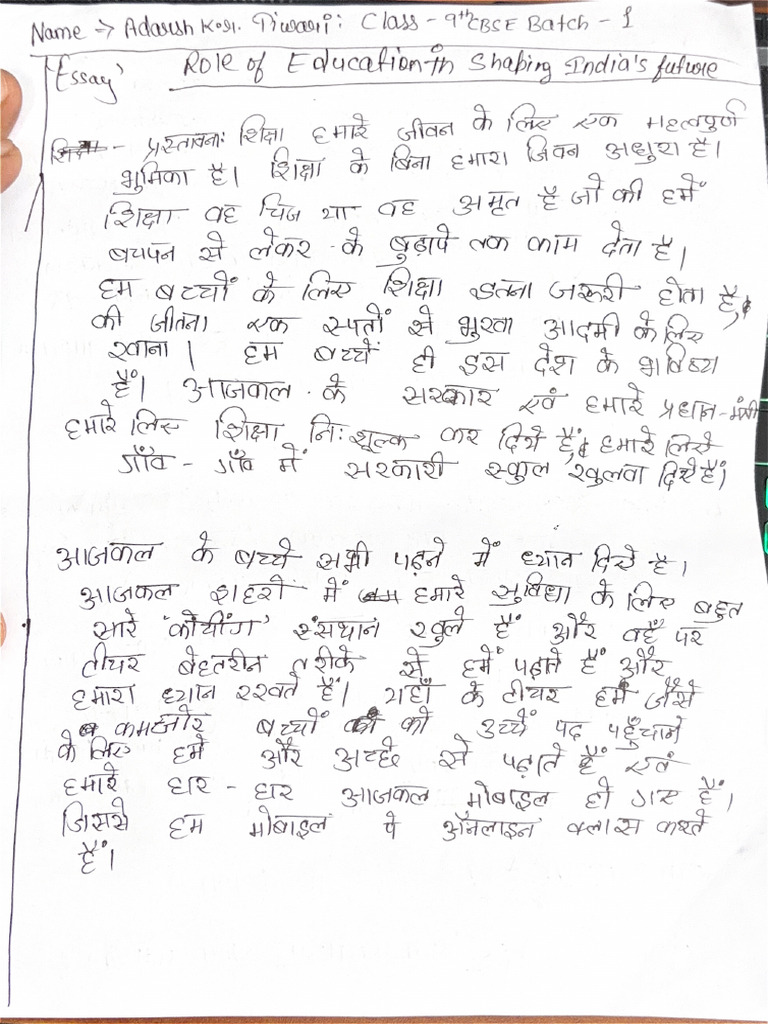 Name → Adarsh Kr. Tiwari: Class - 9th CBSE Batch - 1
'Essay' Role of Education in Shaping India's future
शिक्षा - प्रस्तावना: शिक्षा हमारे जीवन के लिए एक महत्वपुर्ण
भुमिका है। शिक्षा के बिना हमारा जिवन अधुरा है।
शिक्षा वह चिज या वह अमृत है जो की हमें
बचपन से लेकर के बुढ़ापे तक काम देता है।
हम बच्चों के लिए शिक्षा इतना जरुरी होता है,
की जीतना एक स्पतों से भुखा आदमी के लिए
खाना। हम बच्चें ही इस देश के भविष्य
हैं। आजकल के सरकार एवं हमारे प्रधान-मंत्री
हमारे लिए शिक्षा नि:शुल्क कर दिये हैं, हमारे लिये
गाँव - गाँव में सरकारी स्कुल खुलवा दिये हैं।
आजकल के बच्चे सभी पढ़ने में ध्यान दिये है।
आजकल शहरो में हमारे सुविधा के लिए बहुत
सारे 'कोचींग' संस्थान खुले हैं और वहाँ पर
टीचर बेहतरीन तरीके से हमें पढ़ाते हैं और
हमारा ध्यान रखते हैं। यहाँ के टीचर हमें जैसे
कमजोर बच्चों को उच्चें पद पहुँचाने
के लिए हमें और अच्छे से पढ़ाते हैं एवं
हमारे घर - घर आजकल मोबाइल हो गए हैं।
जिससे हम मोबाइल पे ऑनलाइन क्लास करते
हैं।